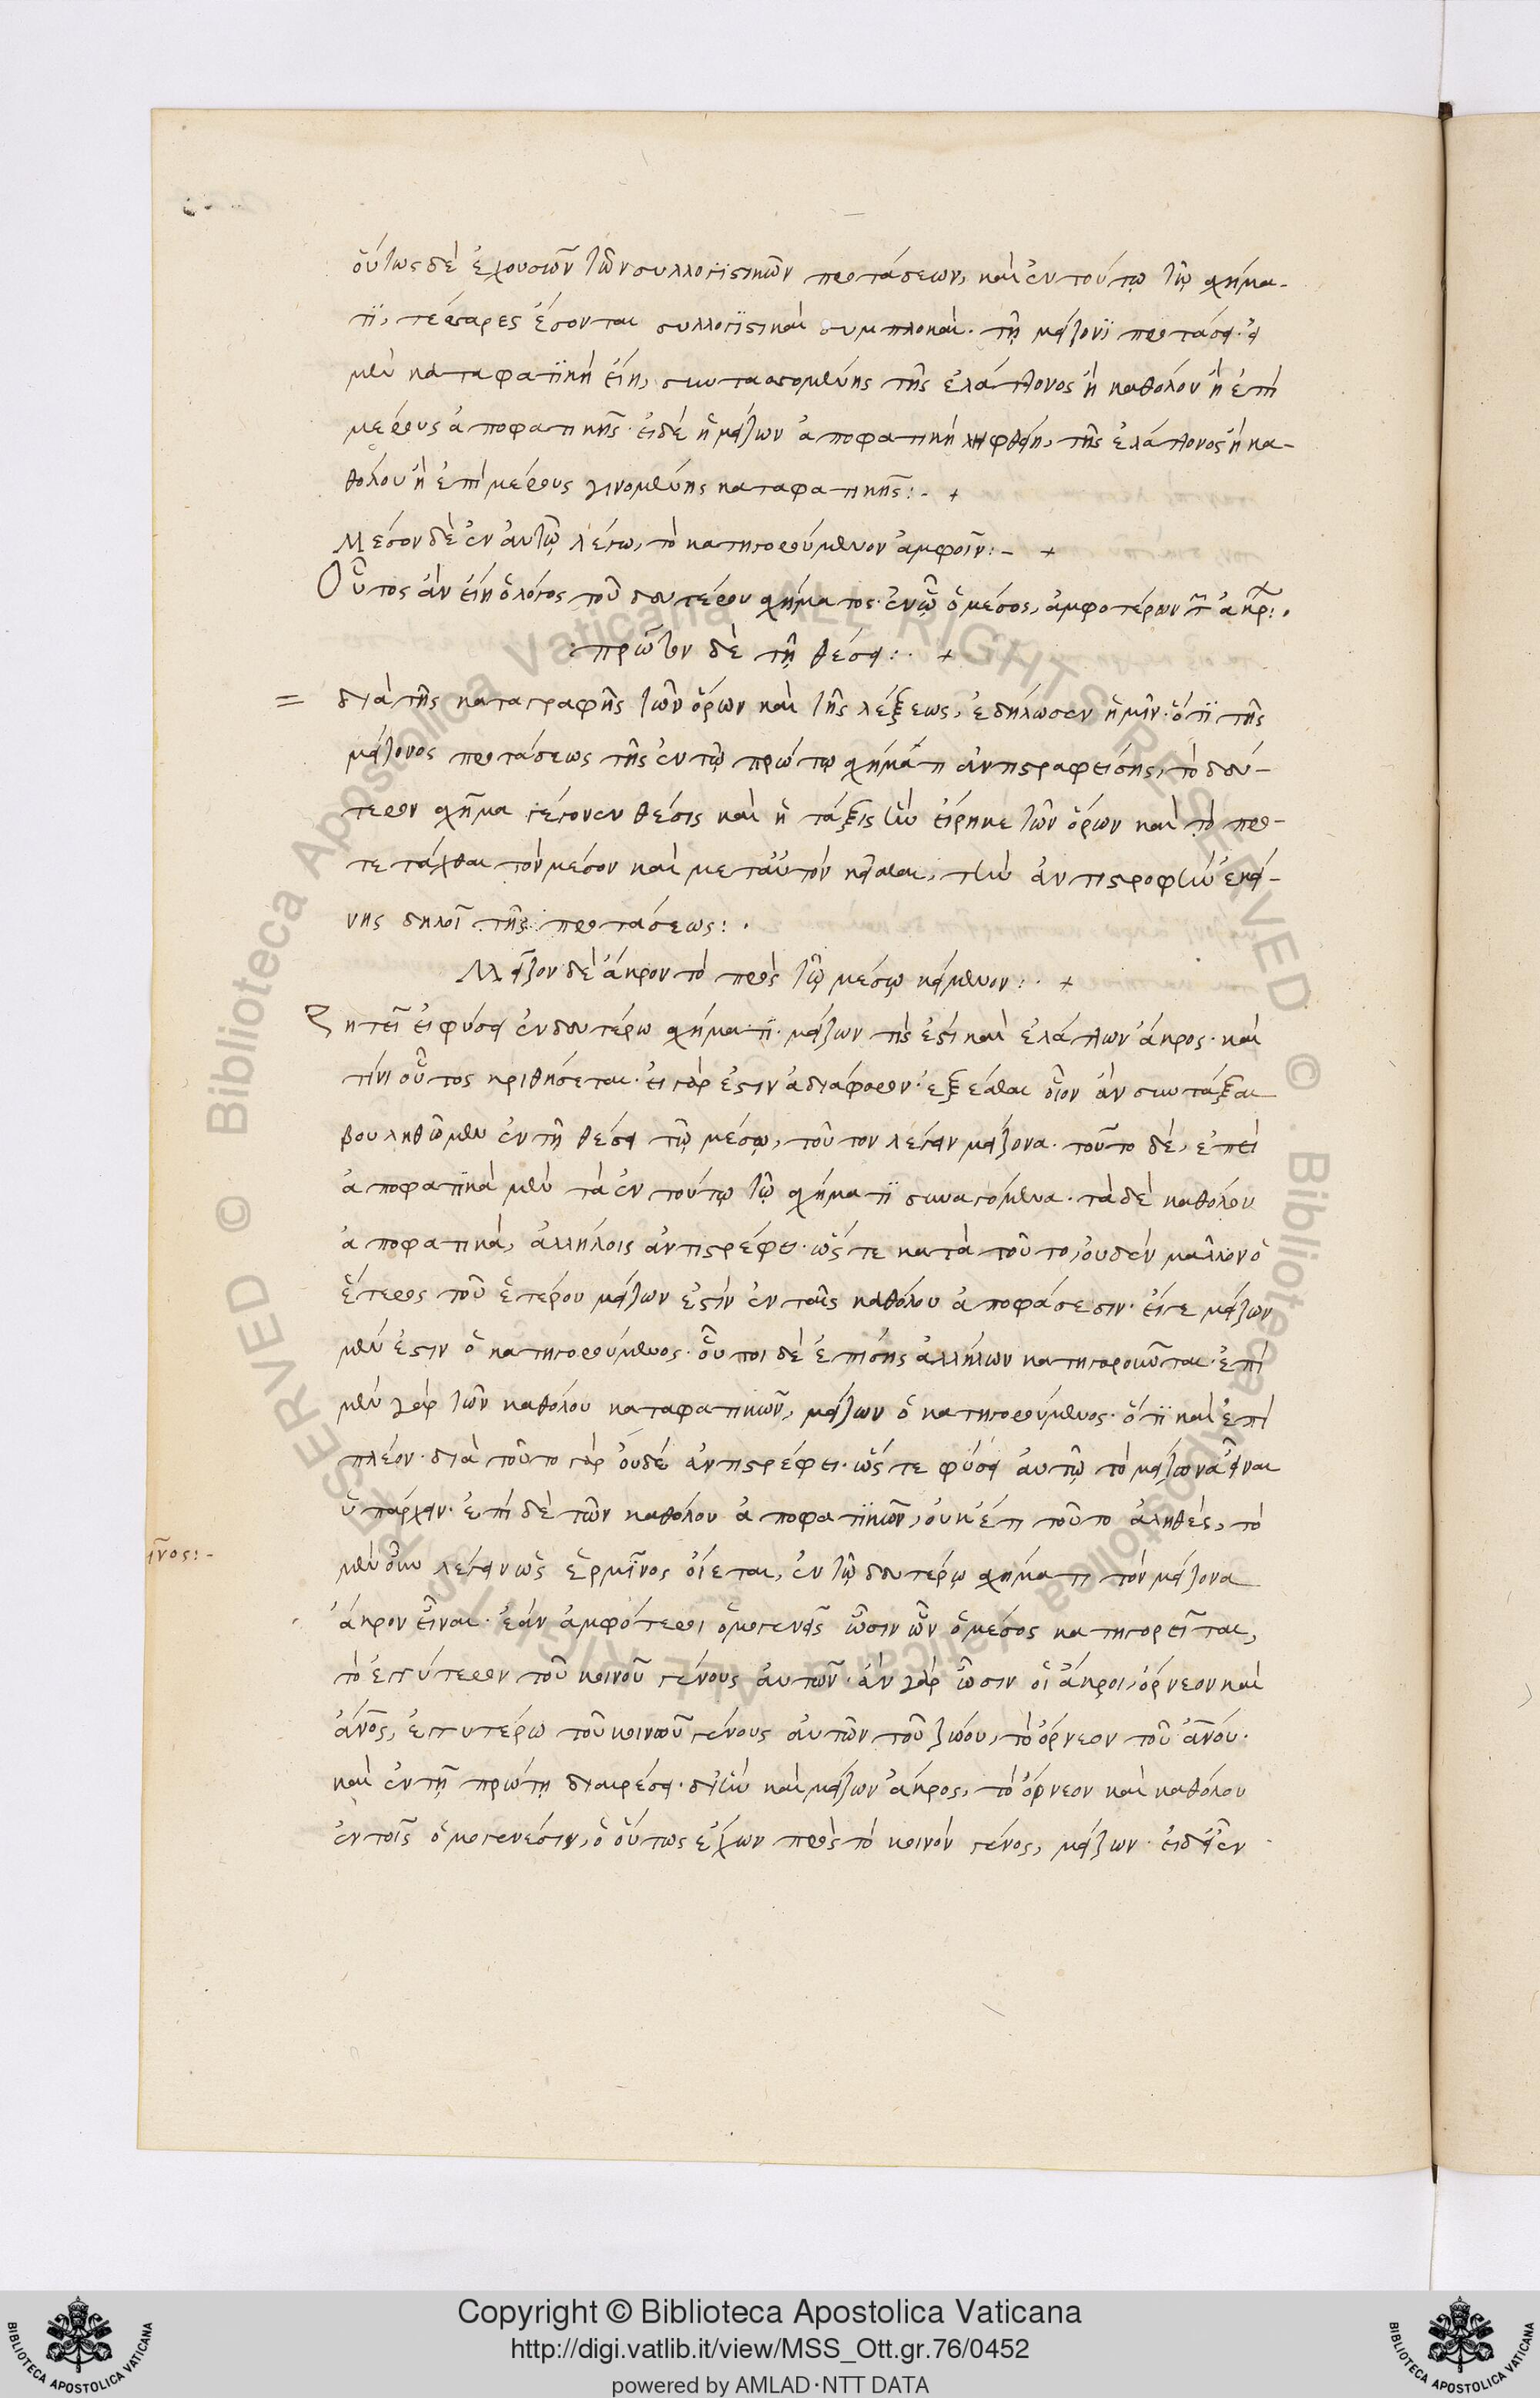 οὕτως δὲ ἐχουσῶν τῶν συλλογιστικῶν προτάσεων, καὶ ἐν τούτῳ τῷ σχήμα-
τι, τέσσαρες ἔσονται συλλογιστικαὶ συμπλοκαὶ. τῇ μείζονι προτάσει. εἰ
μὲν καταφατικὴ εἴη, συντασσομένης τῆς ἐλάττονος ἢ καθόλου ἢ ἐπὶ
μέρους ἀποφατικῆς. εἰ δὲ ἡ μείζων ἀποφατικὴ ληφθείη, τῆς ἐλάττονος ἢ κα-
θόλου ἢ ἐπὶ μέρους γινομένης καταφατικῆς:- +
Μέσον δὲ ἐν αὐτῷ λέγω, τὸ κατηγορούμενον ἀμφοῖν:- +
Οὗτος ἂν εἴη ὁ λόγος τοῦ δευτέρου σχήματος. ἐν ᾧ ὁ μέσος, ἀμφοτέρων τ ἄκρ:.
πρῶτον δὲ τῇ θέσει:. +
= διὰ τῆς καταγραφῆς τῶν ὅρων καὶ τῆς λέξεως, ἐδήλωσεν ἡμῖν. ὅτι τῆς
μείζονος προτάσεως τῆς ἐν τῷ πρώτῳ σχήματι ἀντιστραφείσης, τὸ δεύ-
τερον σχῆμα γέγονεν θέσις καὶ ἡ τάξις ἣν εἴρηκε τῶν ὅρων καὶ τὸ προ-
τετάχθαι τὸν μέσον καὶ μετ αὐτὸν κεῖσθαι, τὴν ἀντιστροφὴν ἐκεί-
νης δηλοῖ τῆς προτάσεως:.
Μεῖζον δὲ ἄκρον τὸ πρὸς τῷ μέσῳ κείμενον:. +
Ζητεῖ εἰ φύσει ἐν δευτέρω σχήματι. μείζων τίς ἐστι καὶ ἐλάττων ἄκρος. καὶ
τίνι οὗτος κριθήσεται. εἰ γὰρ ἐστιν ἀδιάφορον. ἐξέσται οἷον ἂν συντάξαι
βουληθῶμεν ἐν τῇ θέσει τῷ μέσῳ, τοῦτον λέγειν μείζονα. τοῦτο δὲ, ἐπεὶ
ἀποφατικὰ μὲν τὰ ἐν τούτῳ τῷ σχήματι συναγόμενα. τὰ δὲ καθόλου
ἀποφατικὰ, ἀλλήλοις ἀντιστρέφει. ὥστε κατὰ τοῦτο, οὐδὲν μᾶλλον ὁ
ἕτερος τοῦ ἑτέρου μείζων ἐστὶν ἐν ταῖς καθόλου ἀποφάσεσιν. εἴγε μείζων
μὲν ἐστιν ὁ κατηγορούμενος. οὗτοι δὲ ἐπίσης ἀλλήλων κατηγοροῦνται. ἐπὶ
μὲν γὰρ τῶν καθόλου καταφατικῶν, μείζων ὁ κατηγορούμενος. ὅτι καὶ ἐπὶ
πλέον. διὰ τοῦτο γὰρ οὐδὲ ἀντιστρέφει. ὥστε φύσει αὐτῷ τὸ μείζονα εἶναι
ὑπάρχειν. ἐπὶ δὲ τῶν καθόλου ἀποφατικῶν, οὐκέτι τοῦτο ἀληθὲς, τὸ
ῖνος:-
μὲν οὖν λέγειν ὡς ἑρμῖνος οἴεται, ἐν τῷ δευτέρῳ σχήματι τὸν μείζονα
ἄκρον εἶναι. ἐὰν ἀμφότεροι ὁμογενεῖς ὦσιν ὧν ὁ μέσος κατηγορεῖται,
τὸ ἐγγύτερον τοῦ κοινοῦ γένους αὐτῶν. ἂν γὰρ ὦσιν οἱ ἄκροι, ὄρνεον καὶ
ἄνος, ἐγγυτέρω τοῦ κοινοῦ γένους αὐτῶν τοῦ ζώου, τὸ ὄρνεον τοῦ ἀνου.
καὶ ἐν τῇ πρώτῃ διαιρέσει. δι ἣν καὶ μείζων ἄκρος, τὸ ὄρνεον καὶ καθόλου
ἐν τοῖς ὁμογενέσιν, ὁ οὕτως ἔχων πρὸς τὸ κοινὸν γένος, μείζων. εἰ δεῖ ἐν
Copyright © Biblioteca Apostolica Vaticana
http://digi.vatlib.it/view/MSS_Ott.gr.76/0452
powered by AMLAD·NTT DATA